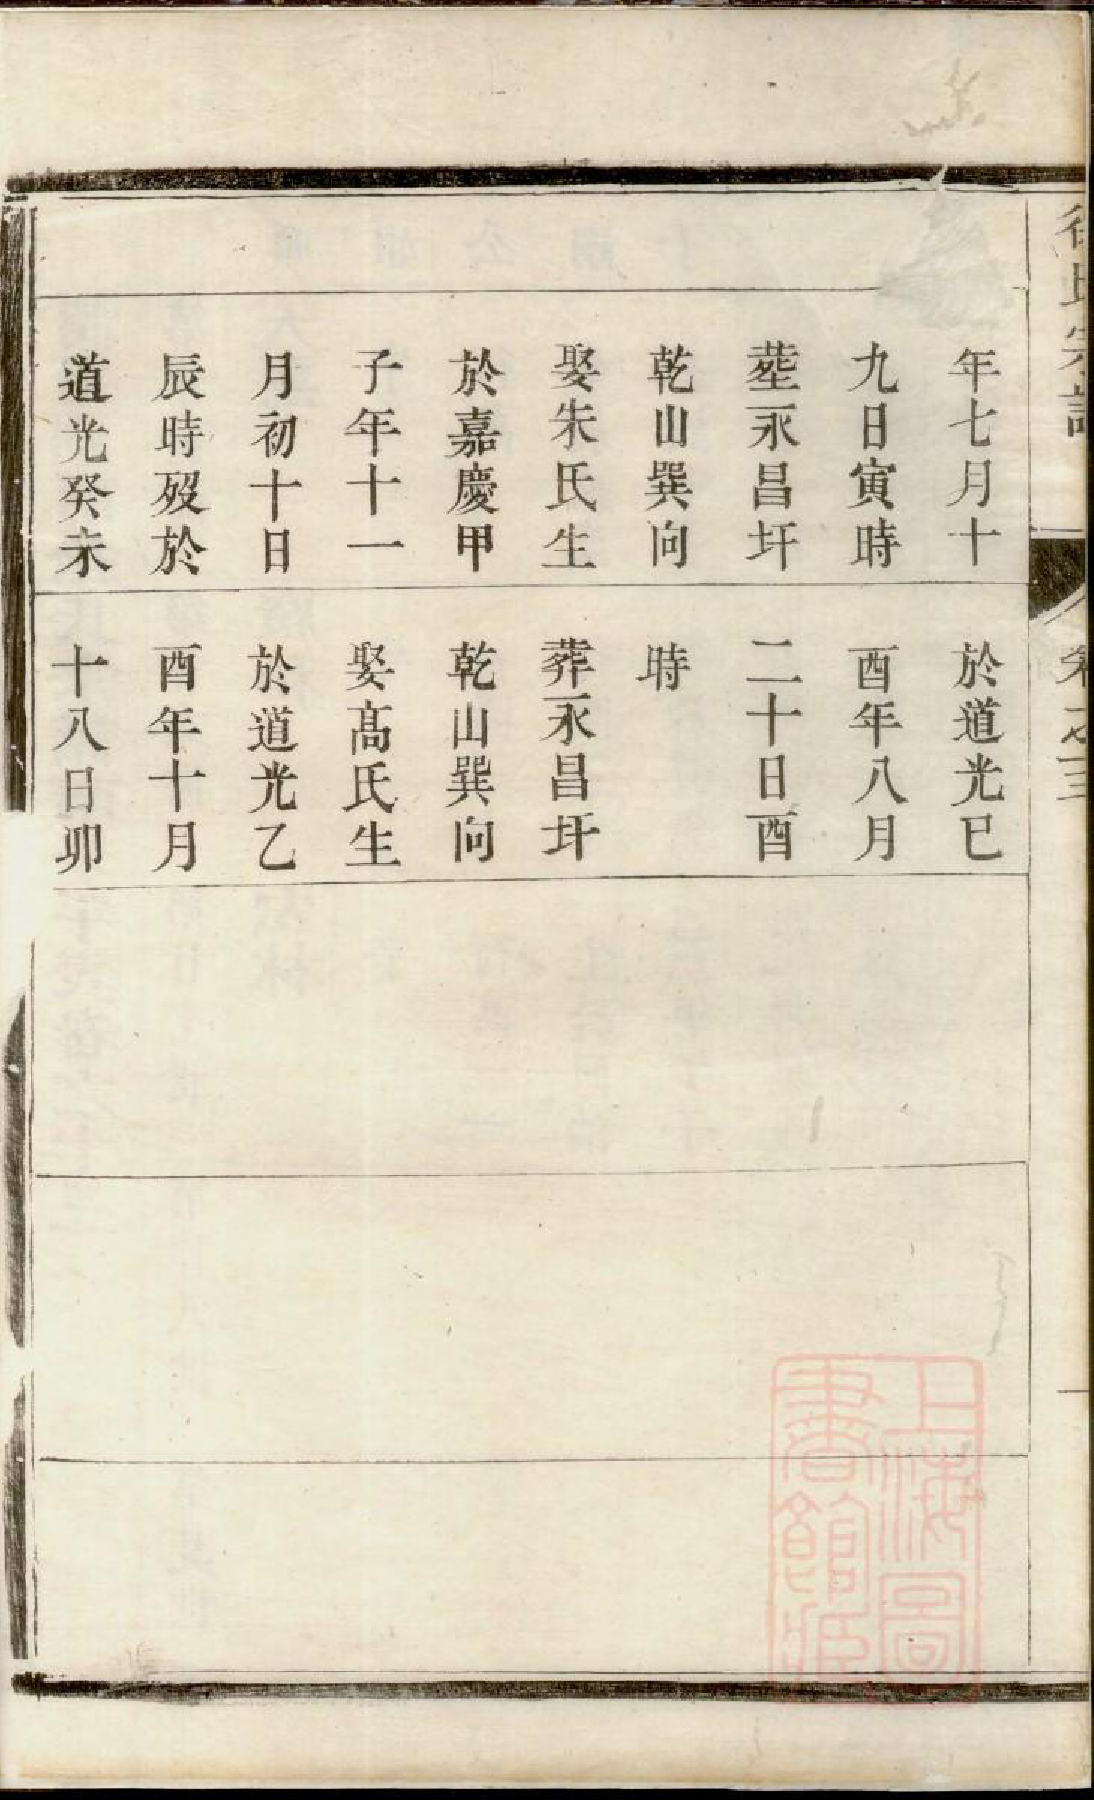 徐氏宗譜
卷之三
年七月十
九日寅時
塟永昌圩
乾山巽向
娶朱氏生
於嘉慶甲
子年十一
月初十日
辰時歿於
道光癸未
於道光已
酉年八月
二十日酉
時
葬永昌圩
乾山巽向
娶高氏生
於道光乙
酉年十月
十八日卯
上海圖
書館藏